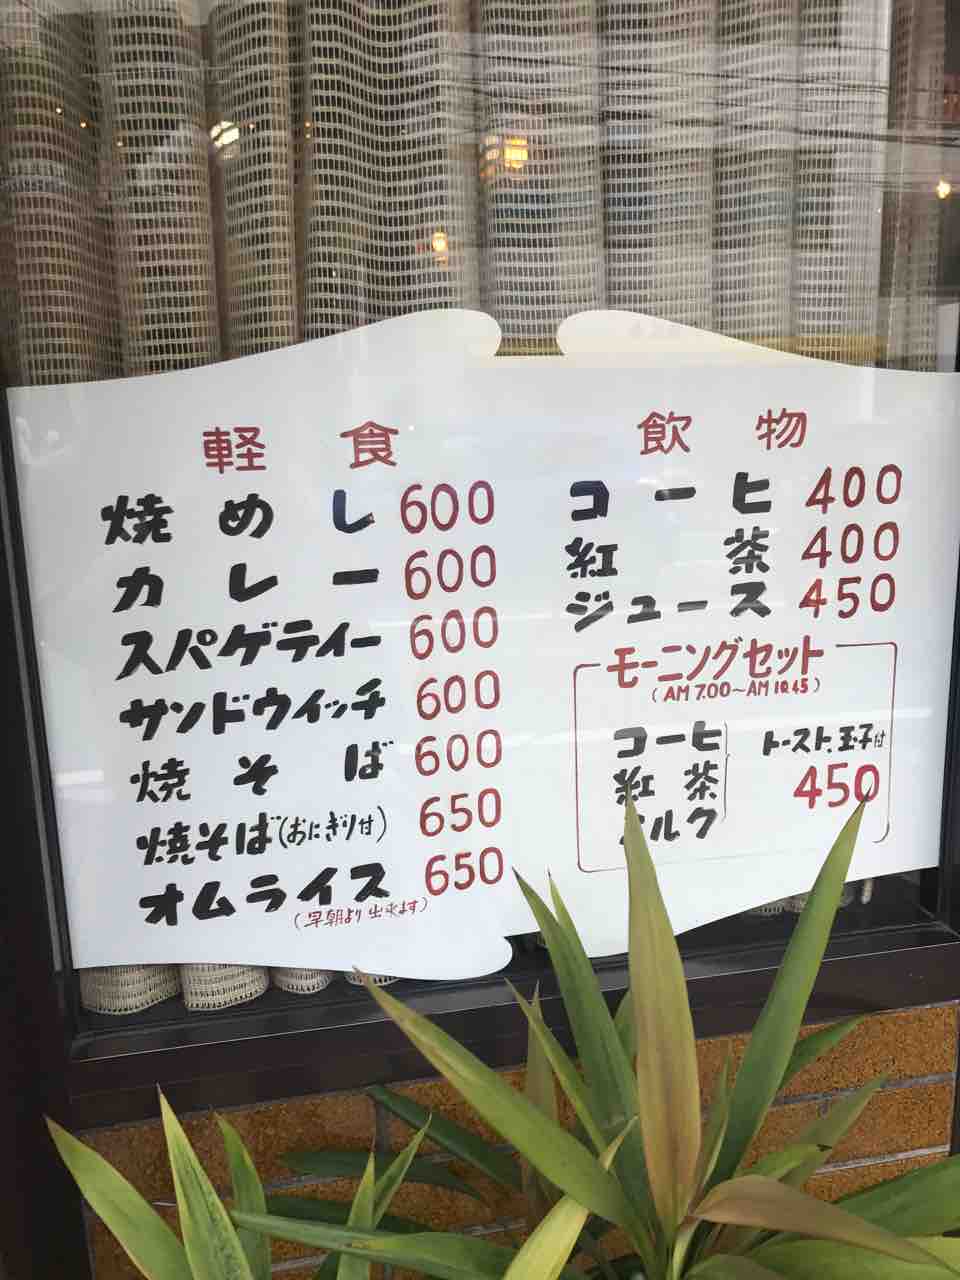 軽食
焼めし 600
カレー 600
スパゲティー 600
サンドウィッチ 600
焼そば 600
焼そば(おにぎり付) 650
オムライス 650
(早朝より出来ます)
飲物
コーヒ 400
紅茶 400
ジュース 450
モーニングセット
(AM 7.00~AM 10.45)
コーヒ
紅茶
ミルク
トースト、玉子付
450